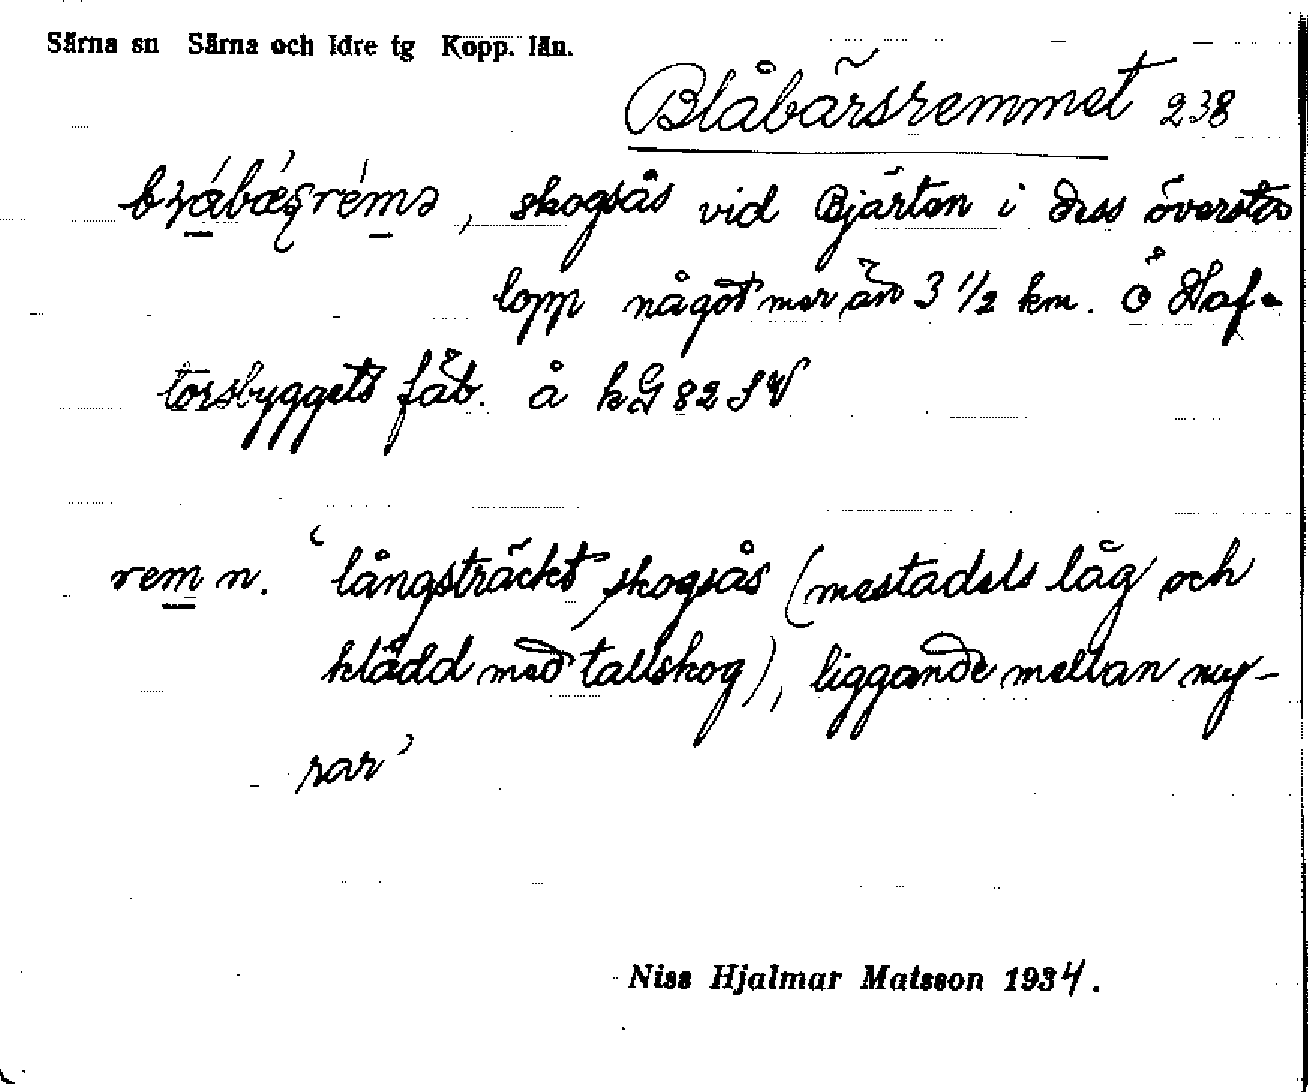 Särna sn Särna och Idre tg Kopp. län.
Blåbärsremmet 238
, skogsås vid Bjärtan i dess översta
lopp något mer än 3 1/2 km. Ö Haf-
torsbyggets fäb. å kG 82 SV
rem n. ‘långsträckt skogsås (mestadels låg och
klädd med tallskog), liggande mellan my-
rar’
Niss Hjalmar Matsson 1934.